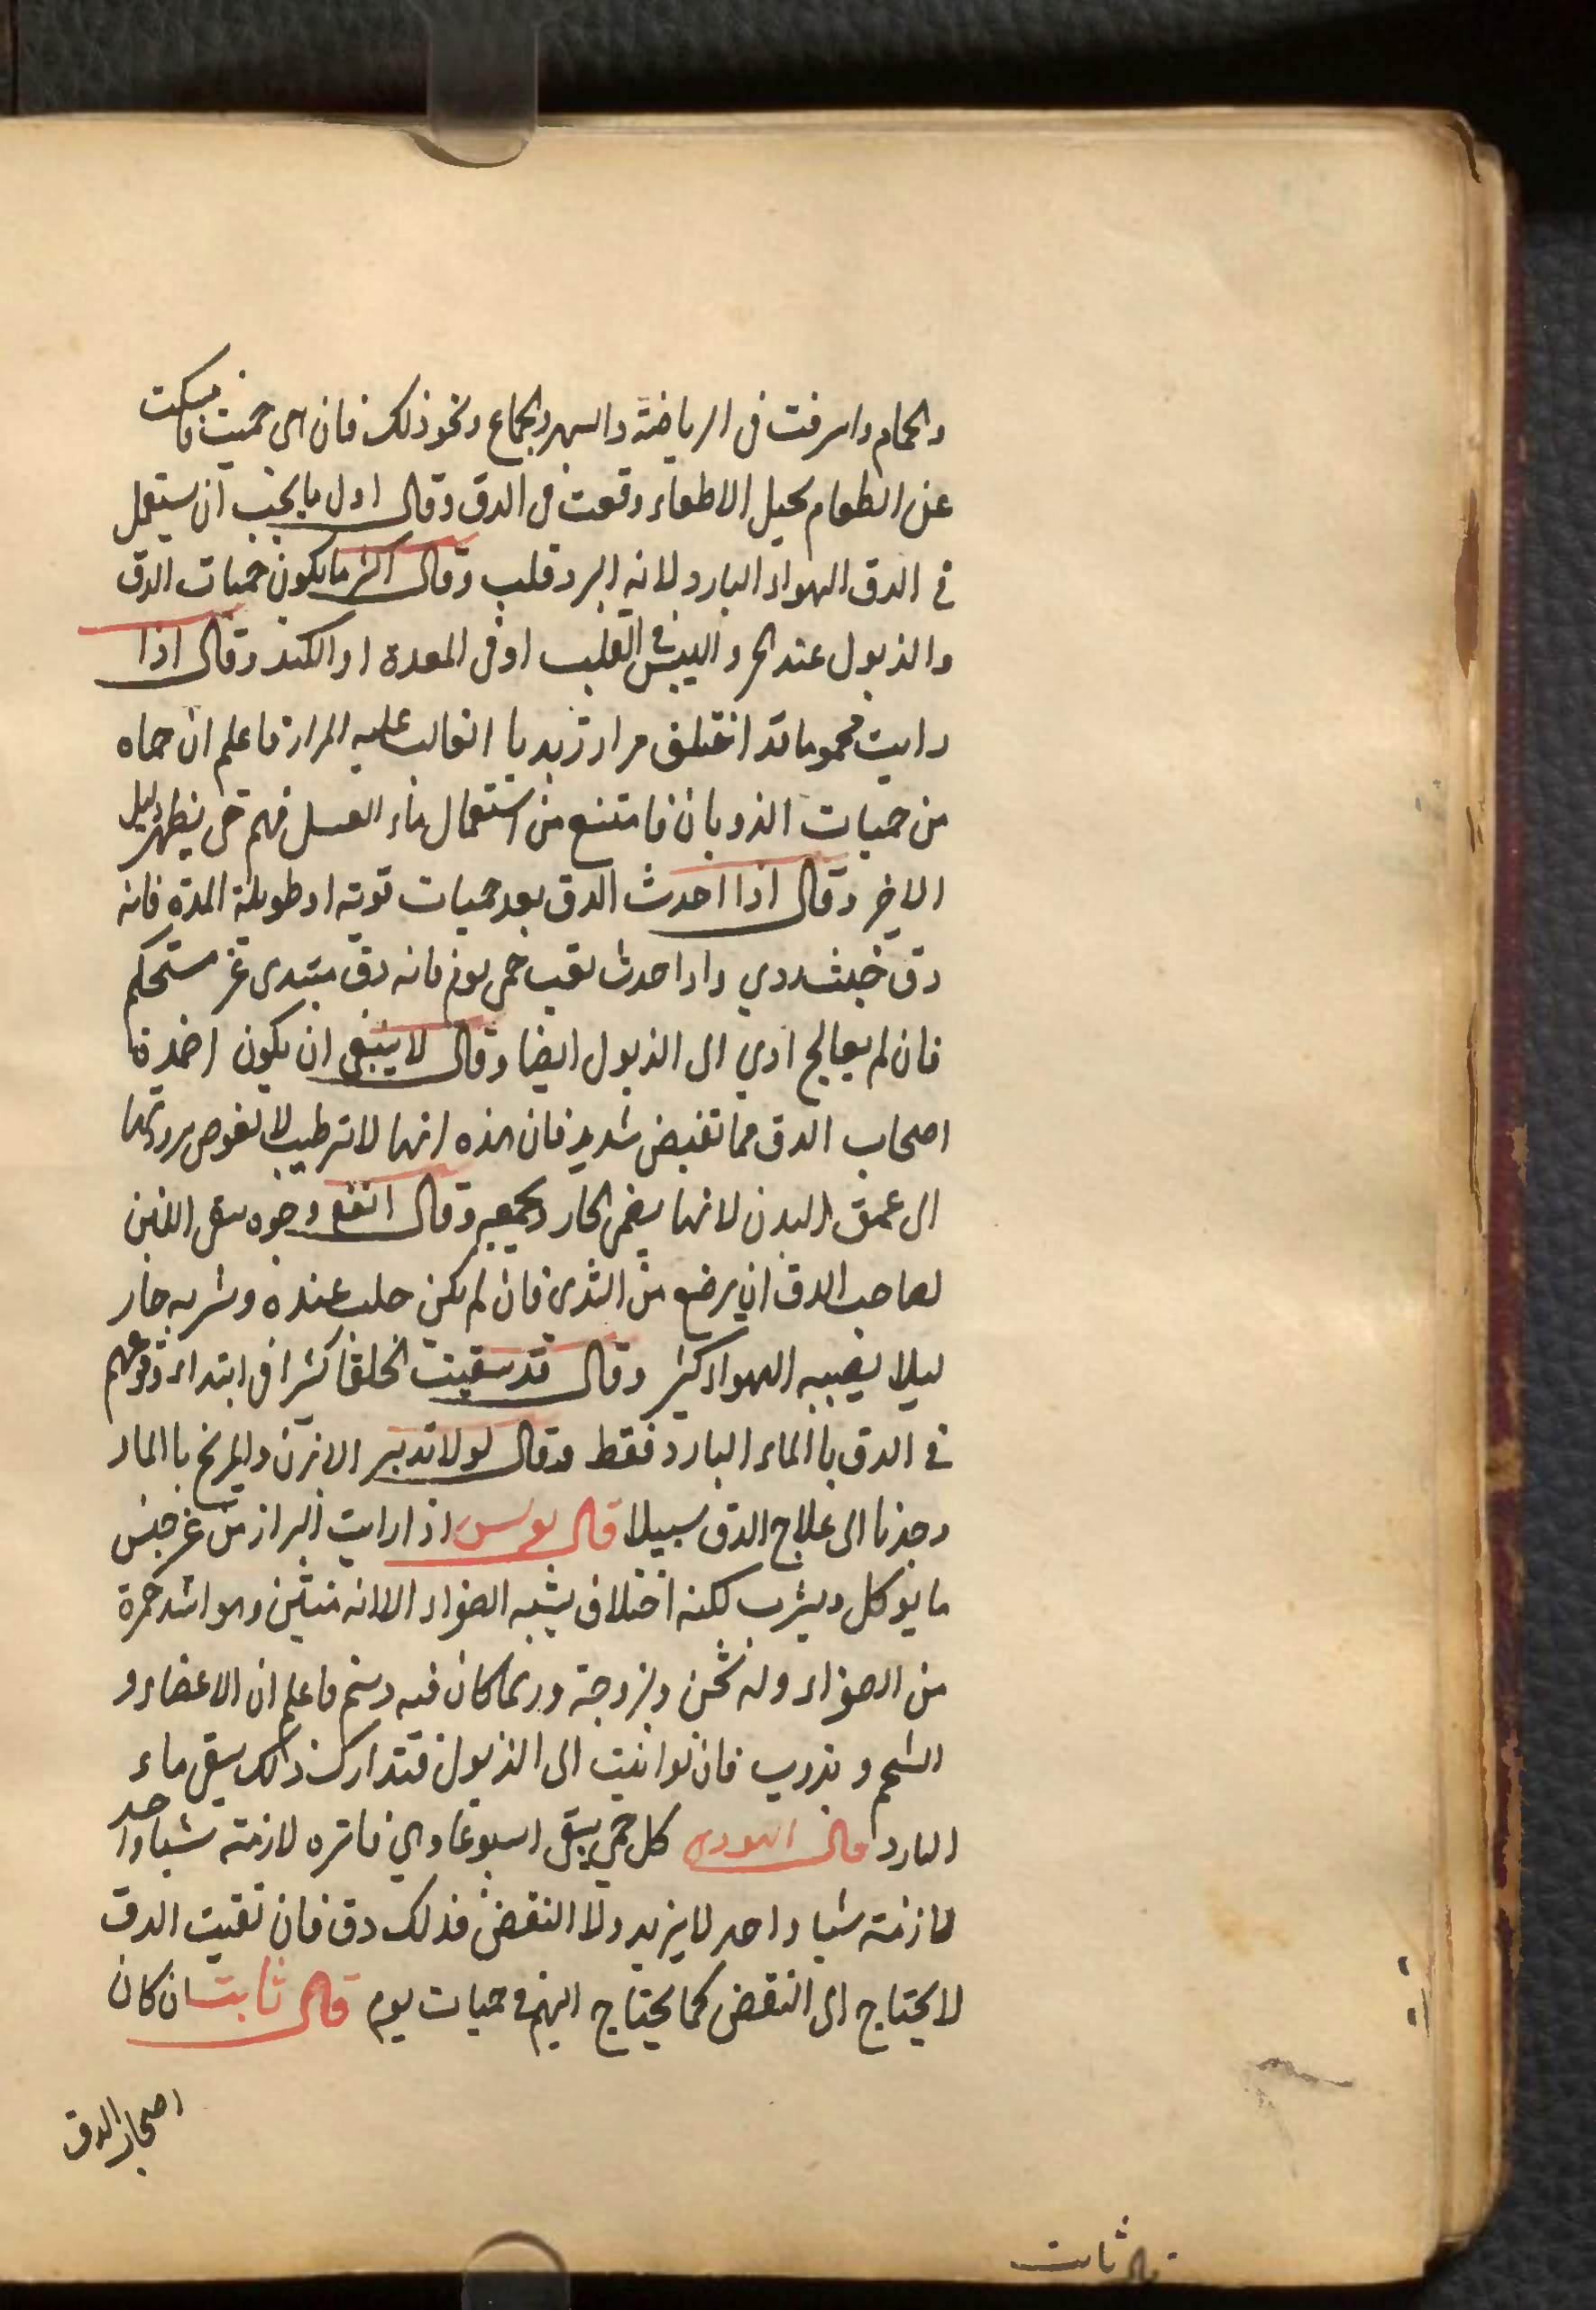 والحمام واسرفت فى الرياضة والسهر والجماع ونحو ذلك فان هى حميت فامسكت
عن الطعام بحيل الاطعاء وقعت فى الدق وقال اول ما يجب ان يستعمل
فى الدق الهواء البارد لانه ابرد قلب وقال اكثر ما يكون حميات الدق
والذبول عند الحر واليبس فى القلب او فى المعدة او الكبد وقال اذا
رايت محموما قد اختلف مرار زبديا الغالب عليه المرار فاعلم ان حماه
من حميات الذوبان فامتنع من استعمال ماء العسل فيهم حتى يظهر دليل
الاخر وقال اذا احدث الدق بعد حميات قويه او طويلة المده فانه
دق خبيث ردي واذا حدث بعقب حمى يوم فانه دق مبتدى غير مستحكم
فان لم يعالج ادي الى الذبول ايضا وقال لا ينبغى ان يكون اضمدة
اصحاب الدق مما تقبض شديد فان هذه انها لا ترطب لا تغوص برودتها
الى عمق البدن لانها يضم الحار ويجمعه وقال انفع وجوه سقى اللبن
لصاحب الدق ان يرضع من الثدى فان لم يكن حلب عنده وشربه حار
ليلا يصيبه الهواء كثير وقال قد سقيت خلقا كثيرا فى ابتداء وقوعهم
فى الدق با الماء البارد فقط وقال لولا تدبير الابزن والمرخ با الماء
وجدنا الى علاج الدق سبيلا قال بولس اذا رايت البراز من غير جنس
ما يوكل ويشرب لكنه اختلاف يشبه الصفراء الا انه منتن وهو اشد حمرة
من الصفراء وله ثخن ولزوجة وربما كان فيه دسم فاعلم ان الاعضاء و
الشحم و تذوب فان توانيت الى الذبول فتدارك ذلك بسقى ماء
البارد قال اليهودي كل حمى يبقى اسبوعا وهي فاتره لازمة شيا واحد
لازمة شيا واحد لا يزيد ولا النقض فذلك دق فان نقيت الدق
لا يحتاج الى النقض كما يحتاج اليهم فى حميات يوم قال ثابت ان كان
اصحاب الدق
قال ثابت